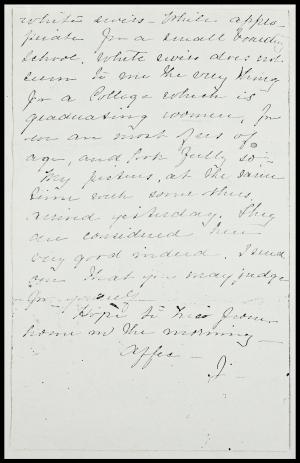 white swiss - while appro-
priate for a small boarding
school. White swiss does not
seem to me the very thing
for a College which is
graduating women, for
we are most of us of
age, and look fully so -
My pictures, at the same
time with some others,
arrived yesterday. They
are considered here
very good indeed. I send
you that you may judge
for yourself
Hope to hear from
home in the morning -
Affec -
J -